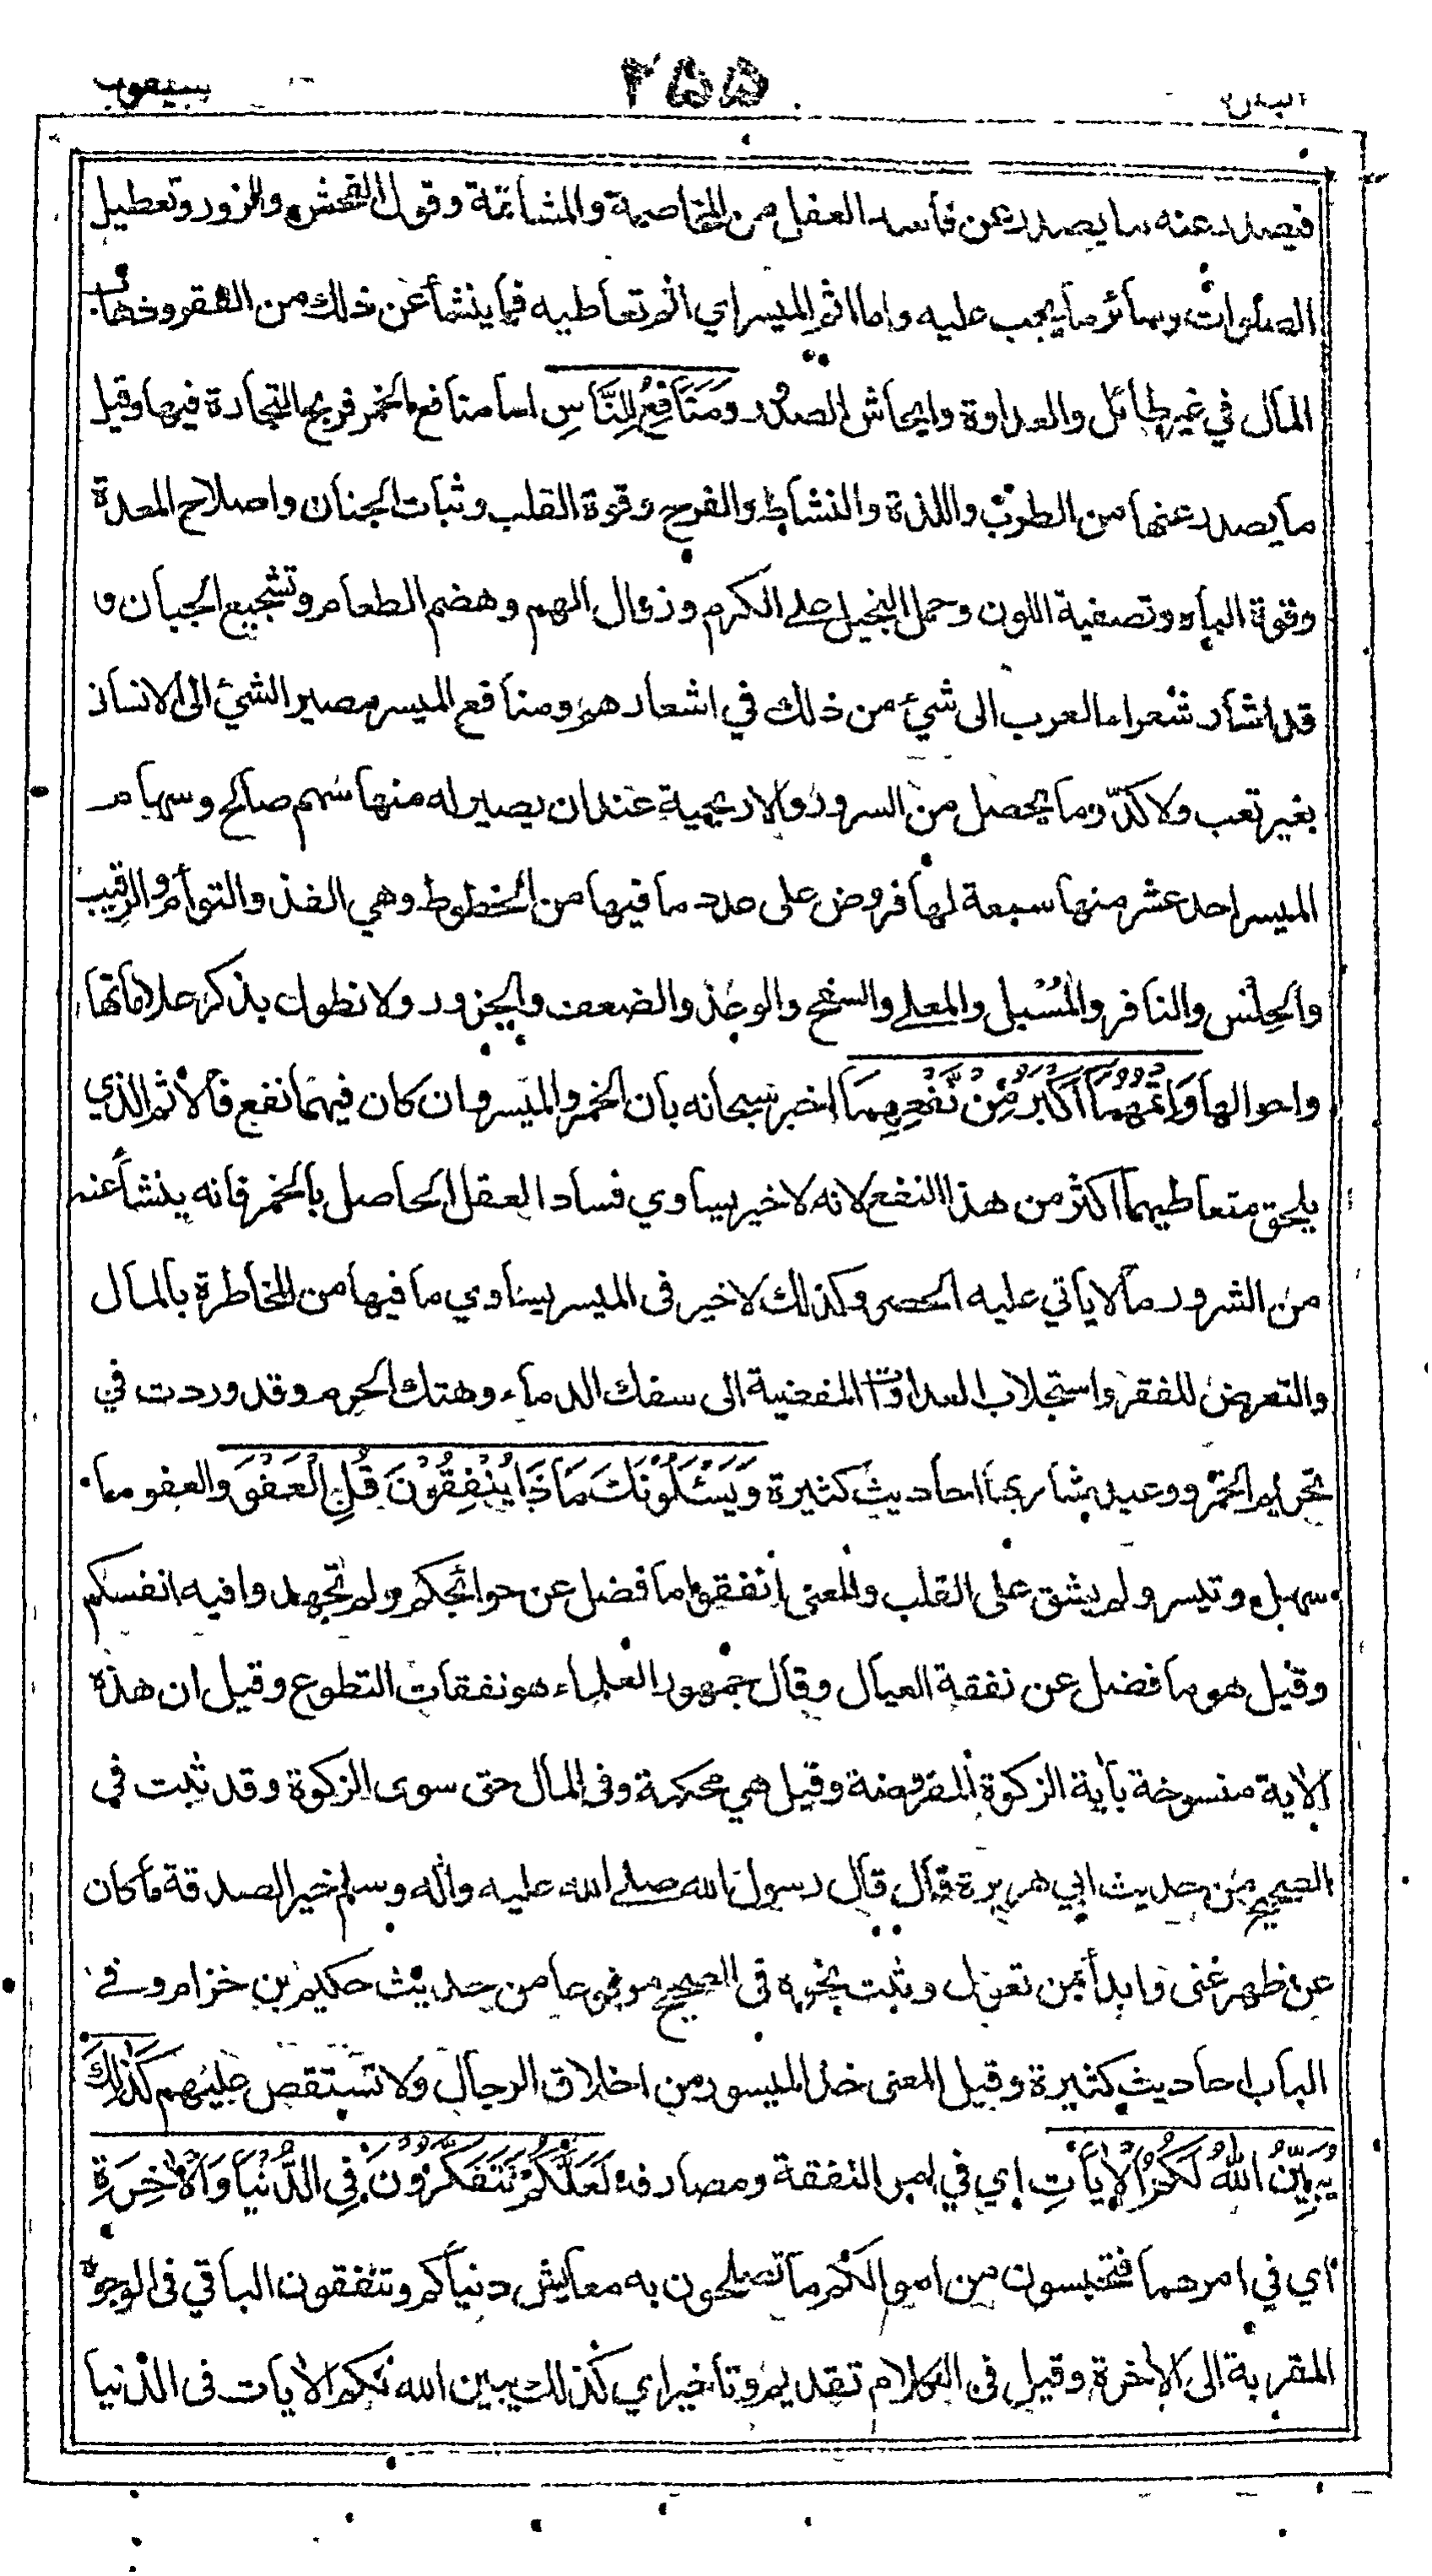 سيقول ٢٥٥ البقرة
فيصدر عنه ما يصدر عن فاسد العقل من المخاصمة والمشاتمة وقول الفحش والزور وتعطيل
الصلوات وسائر ما يجب عليه واما اثم الميسر اي اثم تعاطيه فما ينشأ عن ذلك من الفقر وذهاب
المال في غير طائل والعداوة وايحاش الصدور وَمَنَافِعُ لِلنَّاسِ اما منافع الخمر فربح التجارة فيها وقيل
ما يصدر عنها من الطرب واللذة والنشاط والفرح وقوة القلب وثبات الجنان واصلاح المعدة
وقوة الباه وتصفية اللون وحمل البخيل على الكرم وزوال الهم وهضم الطعام وتشجيع الجبان و
قد اشار شعراء العرب الى شيء من ذلك في اشعارهم ومنافع الميسر مصير الشيء الى الانسان
بغير تعب ولا كدّ وما يحصل من السرور والاريحية عند ان يصير له منها سهم صالح وسهام
الميسر احد عشر منها سبعة لها فروض على عدد ما فيها من الخطوط وهي الفذ والتوأم والرقيب
والحِلْس والنافر والمُسْبل والمعلى والسفيح والوغذ والضعف والجزور ولا نطول بذكر علاماتها
واحوالها وَإِثْمُهُمَا أَكْبَرُ مِنْ نَّفْعِهِمَا اخبر سبحانه بان الخمر والميسر وان كان فيهما نفع فالاثم الذي
يلحق متعاطيهما اكثر من هذا النفع لانه لا خير يساوي فساد العقل الحاصل بالخمر فانه ينشأ عنه
من الشرور ما لا يأتي عليه الحصر وكذلك لا خير فى الميسر يساوي ما فيها من المخاطرة بالمال
والتعرض للفقر واستجلاب العداوات المفضية الى سفك الدماء وهتك الحرم وقد وردت في
تحريم الخمر ووعيد شاربها احاديث كثيرة وَيَسْئَلُونَكَ مَاذَا يُنْفِقُونَ قُلِ الْعَفْوَ والعفو ما
سهل وتيسر ولم يشق على القلب والمعنى انفقوا ما فضل عن حوائجكم ولم تجهدوا فيه انفسكم
وقيل هو ما فضل عن نفقة العيال وقال جمهور العلماء هو نفقات التطوع وقيل ان هذه
الاية منسوخة بأية الزكوة المفروضة وقيل هي محكمة وفى المال حق سوى الزكوة وقد ثبت في
الصحيح من حديث ابي هريرة قال قال رسول الله صلى الله عليه واله وسلم خير الصدقة ما كان
عن ظهر غنى وابدأ بمن تعول وثبت نحوه فى الصحيح مرفوعا من حديث حكيم بن حزام وفي
الباب احاديث كثيرة وقيل المعنى خذ الميسور من اخلاق الرجال ولا تستقص عليهم كَذٰلِكَ
يُبَيِّنُ اللهُ لَكُمُ الْاٰيَاتِ اي في امر النفقة ومصارفه لَعَلَّكُمْ تَتَفَكَّرُونَ فِي الدُّنْيَا وَالْاٰخِرَةِ
اي في امرهما فتحبسون من اموالكم ما تصلحون به معايش دنياكم وتنفقون الباقي فى الوجوه
المقربة الى الاخرة وقيل فى الكلام تقديم وتاخير اي كذلك يبين الله لكم الايات فى الدنيا